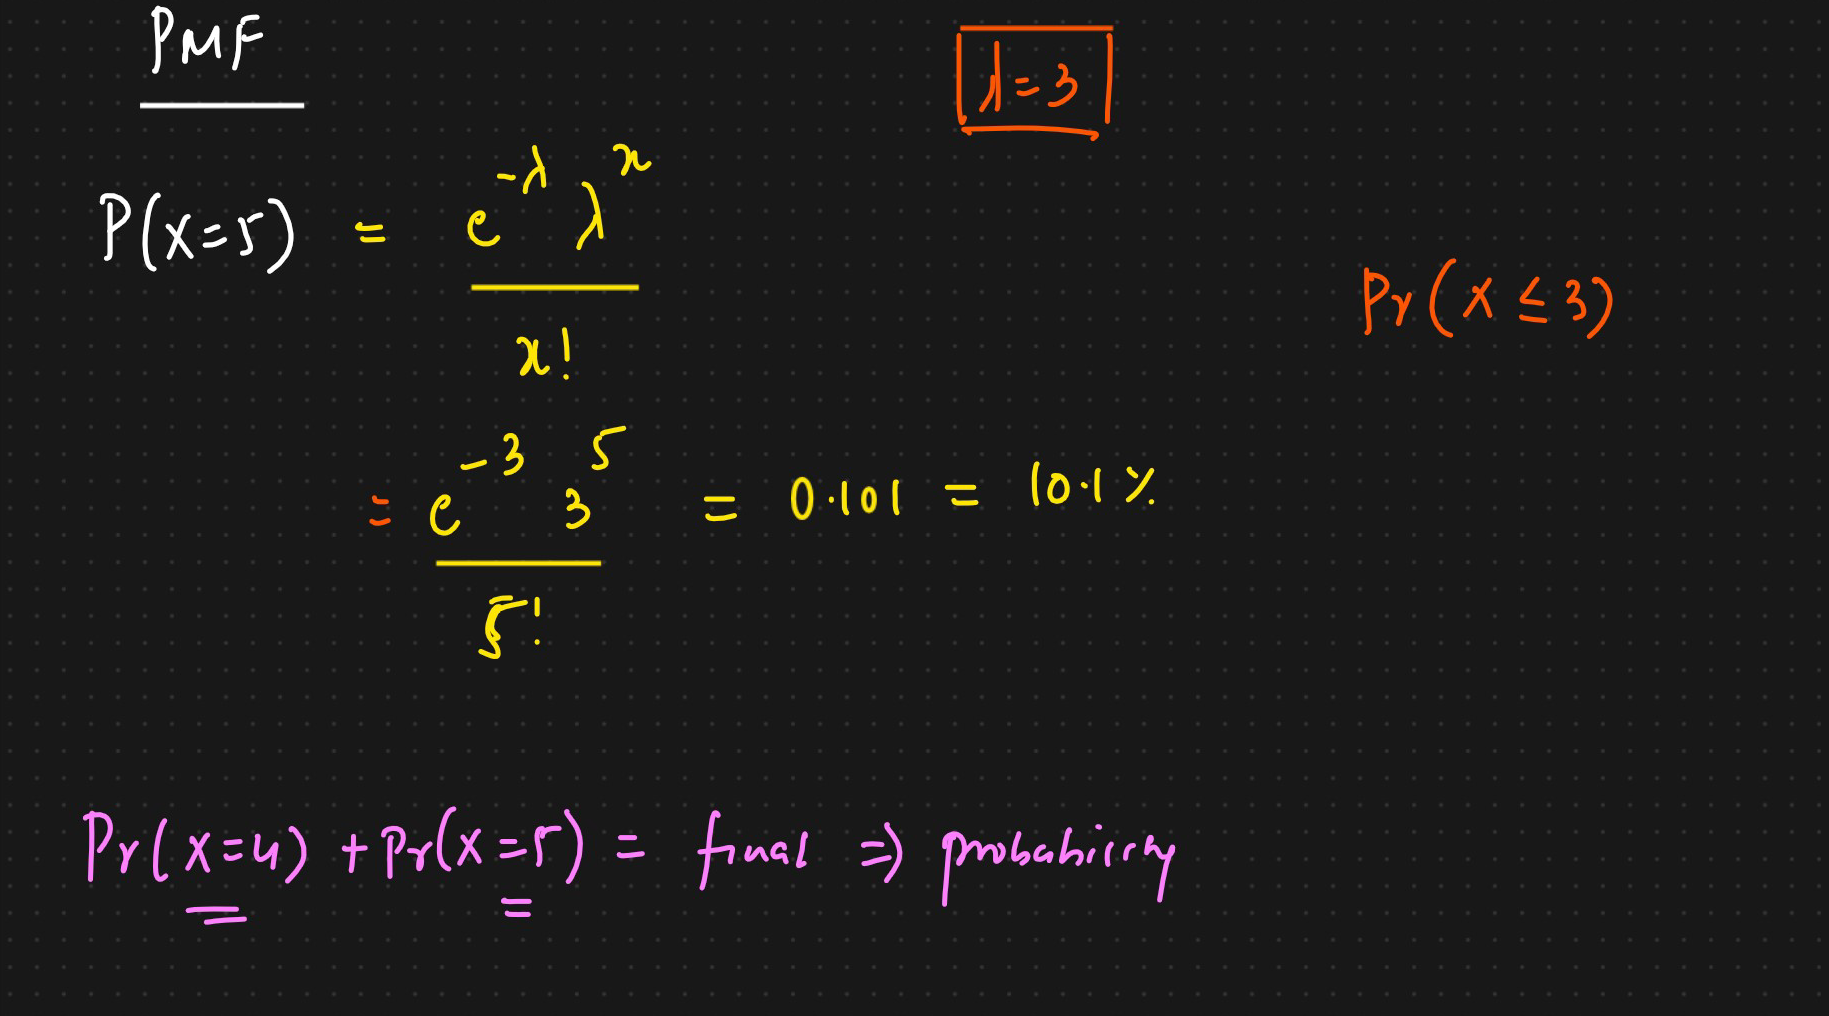 PMF
λ=3
P(X=5) = e^-λ λ^x / x!
Pr(X ≤ 3)
= e^-3 3^5 / 5! = 0.101 = 10.1%
Pr(X=4) + Pr(X=5) = final => probability